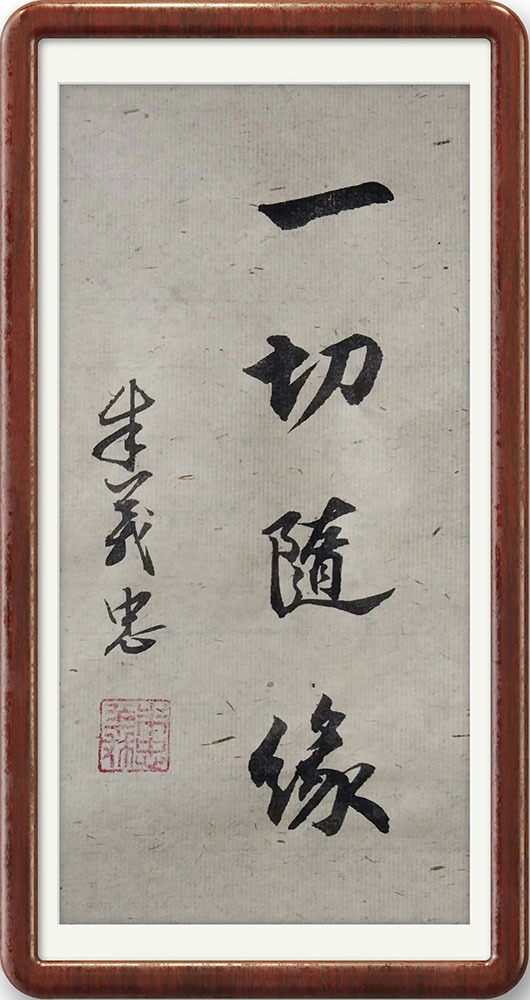 一切隨緣
朱義忠